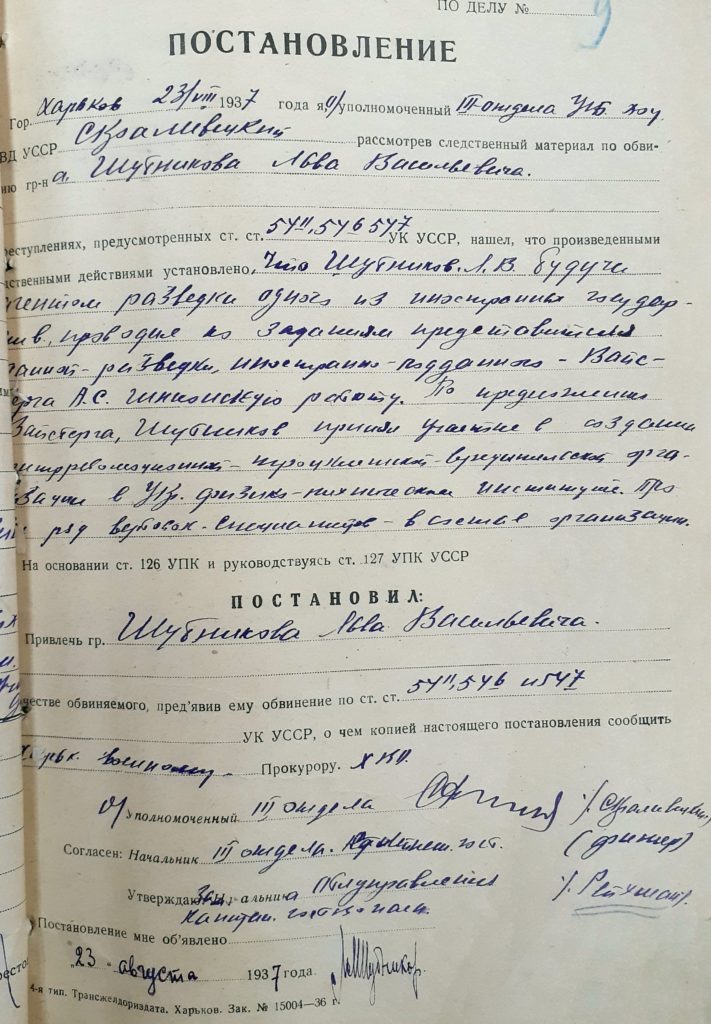 ПО ДЕЛУ № 9
ПОСТАНОВЛЕНИЕ
Гор. Харьков 23/VIII 1937 года я о/уполномоченный III отдела УГБ ХОУ
ВД УССР Скраливецкий рассмотрев следственный материал по обви-
ию гр-на Шубникова Льва Васильевича.
реступлениях, предусмотренных ст. ст. 54 11, 54 6 54 7 УК УССР, нашел, что произведенными
дственными действиями установлено, что Шубников Л. В. будучи
агентом разведки одного из иностранных государ-
ств, проводил по заданиям представителя
данной разведки, иностранно-подданного - Вайс-
берга А.С. шпионскую работу. По предложению
Вайсберга, Шубников принял участие в создании
контрреволюционной троцкистской вредительской орга-
низации в Укр. физико-техническом институте. Про
ряд вербовок специалистов в состав организации.
На основании ст. 126 УПК и руководствуясь ст. 127 УПК УССР
ПОСТАНОВИЛ:
Привлечь гр. Шубникова Льва Васильевича.
честве обвиняемого, пред'явив ему обвинение по ст. ст. 54 11, 54 6 и 54 7
УК УССР, о чем копией настоящего постановления сообщить
Харьк. военному Прокурору. ХВО.
О/Уполномоченный III отдела /Скраливецкий/
Согласен: Начальник III отдела (Фишер)
Утверждаю: Зам. начальника Облуправления /Рейхман/.
Капитан госбезопасн.
Постановление мне об'явлено
"23" августа 1937 года. Л. Шубников.
4-я тип. Трансжелдориздата. Харьков. Зак. № 15004—36 г.